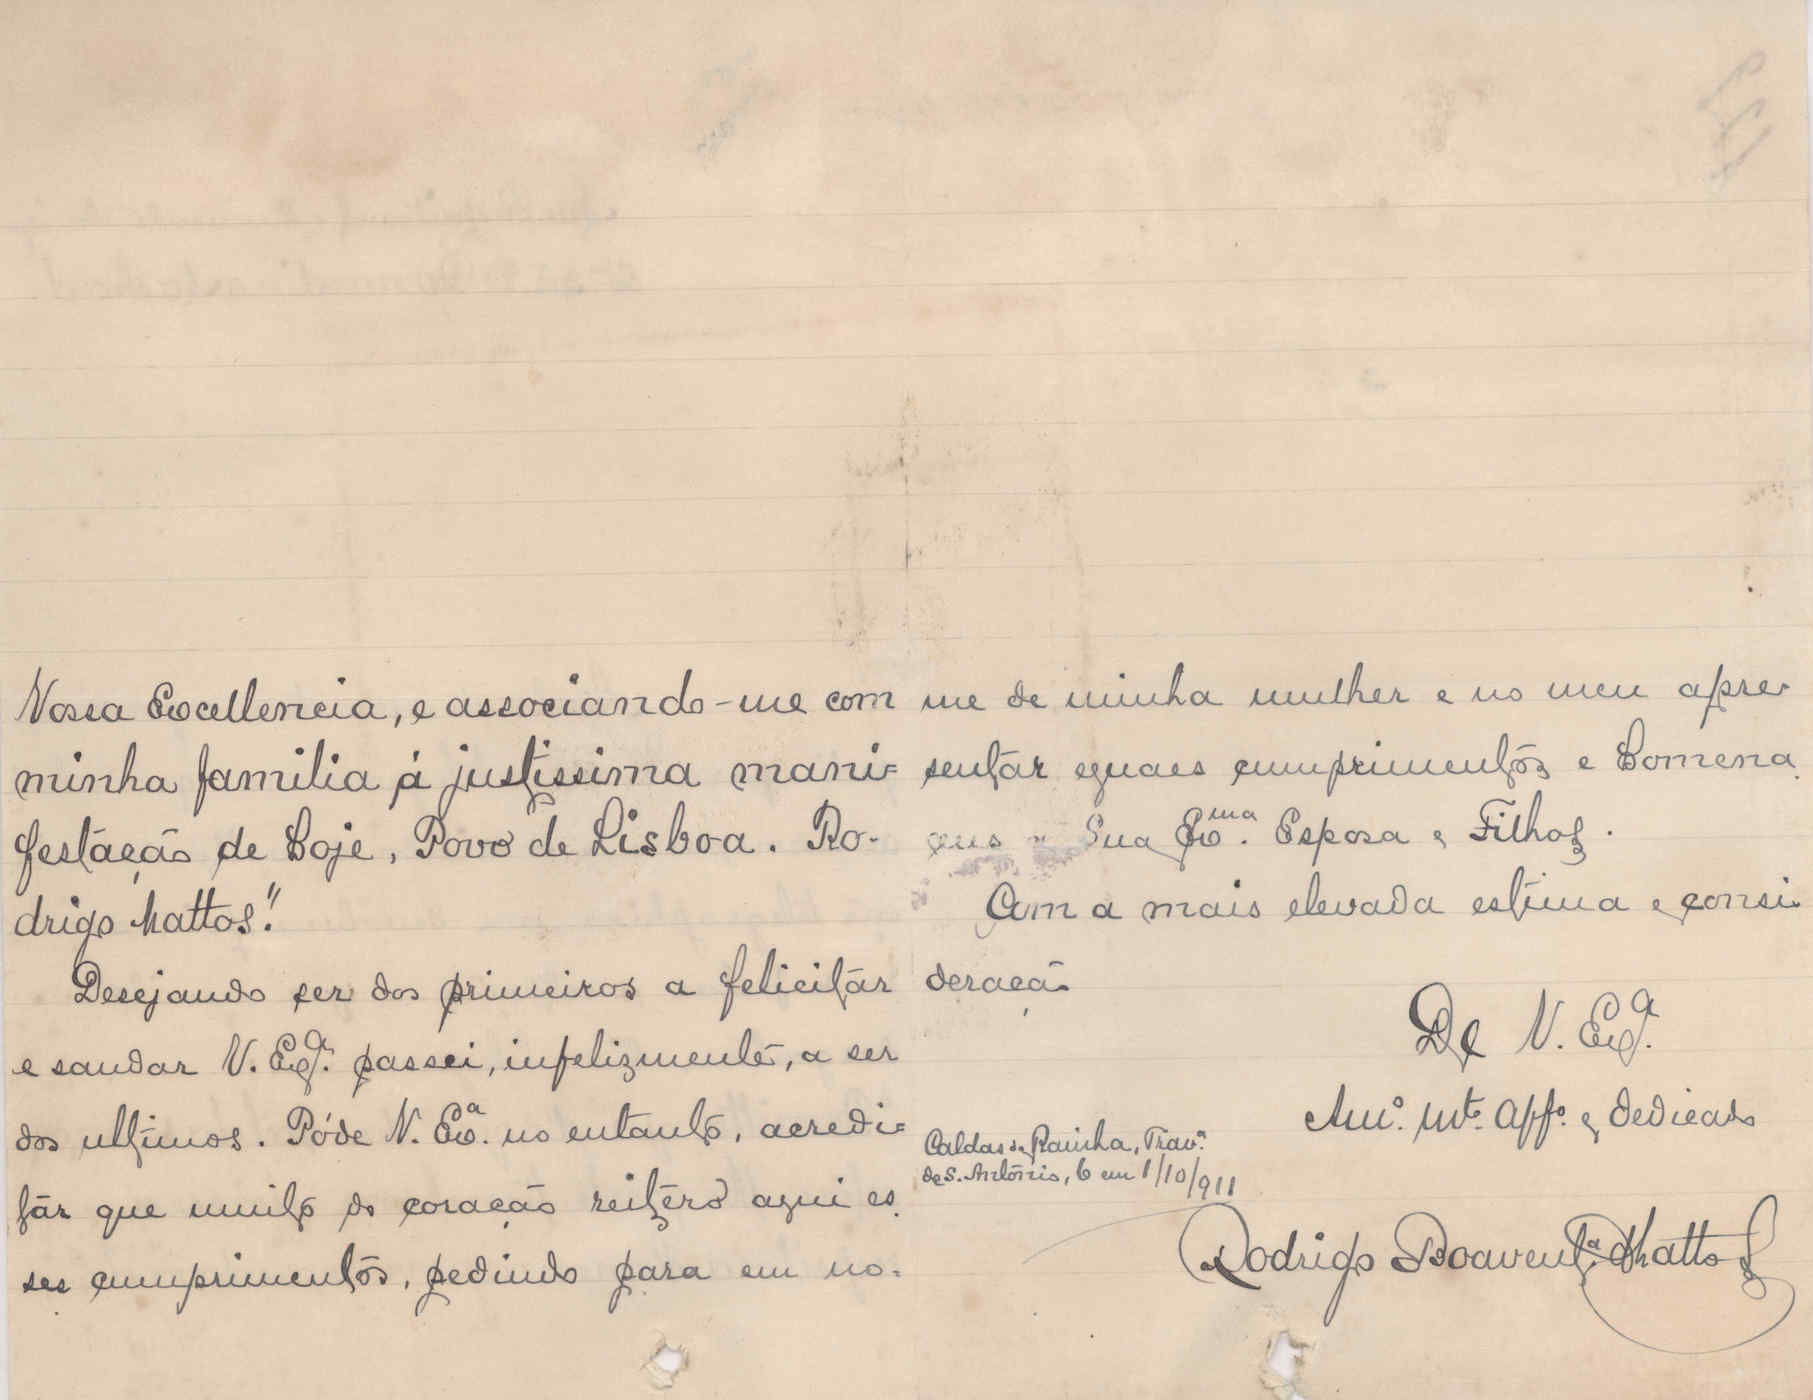 Vossa Excellencia, e associando-me com
minha familia á justissima mani=
festação de hoje, Povo de Lisboa. Ro-
drigo Mattos."
Desejando ser dos primeiros a felicitar
e saudar V. Ex.ª passei, infelizmente, a ser
dos ultimos. Póde V. Ex.ª no entanto, acredi=
tar que muito do coração reitero aqui es
ses cumprimentos, pedindo para em no=
me de minha mulher e no meu apre-
sentar eguaes cumprimentos e homena
gens a Sua Ex.ma Esposa e Filhos.
Com a mais elevada estima e consi-
deração
De V. Ex.ª
Am.º m.to aff.º e dedicado
Caldas da Rainha, Trav.ª
de S. António, 6 em 1/10/911
Rodrigo Boavent.ª Mattos